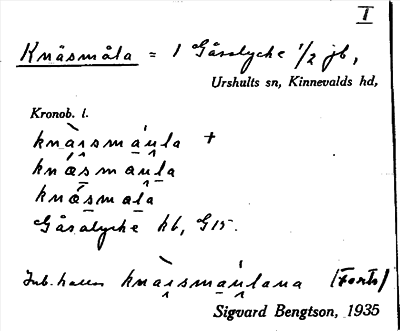 I
Knäsmåla = 1 Gåsalycke 1/2 jb,
Urshults sn, Kinnevalds hd,
Kronob. l.
knàismáula +
knæsmaula
knæsmala
Gåsalycke kb, G15.
Inb. kallas knàismáulana (Forts)
Sigvard Bengtson, 1935